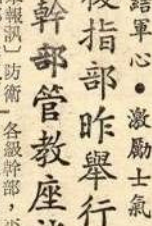 結軍心●激勵士氣
後指部昨舉行
幹部管教座
報訊〕防衛
各級幹部，